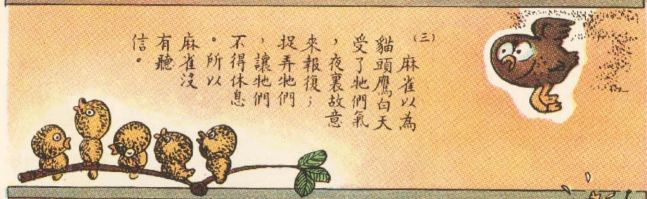 (三)
麻雀以為
貓頭鷹白天
受了牠們氣
，夜裏故意
來報復；
捉弄牠們
，讓牠們
不得休息
。所以
麻雀沒
有聽
信。